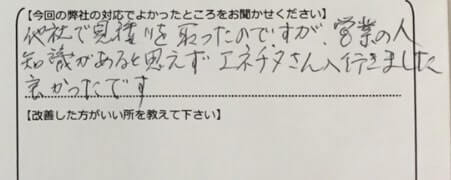 【今回の弊社の対応でよかったところをお聞かせください】
他社で見積りを取ったのですが、営業の人
知識があると思えず エネチタさんへ行きました
良かったです
【改善した方がいい所を教えて下さい】